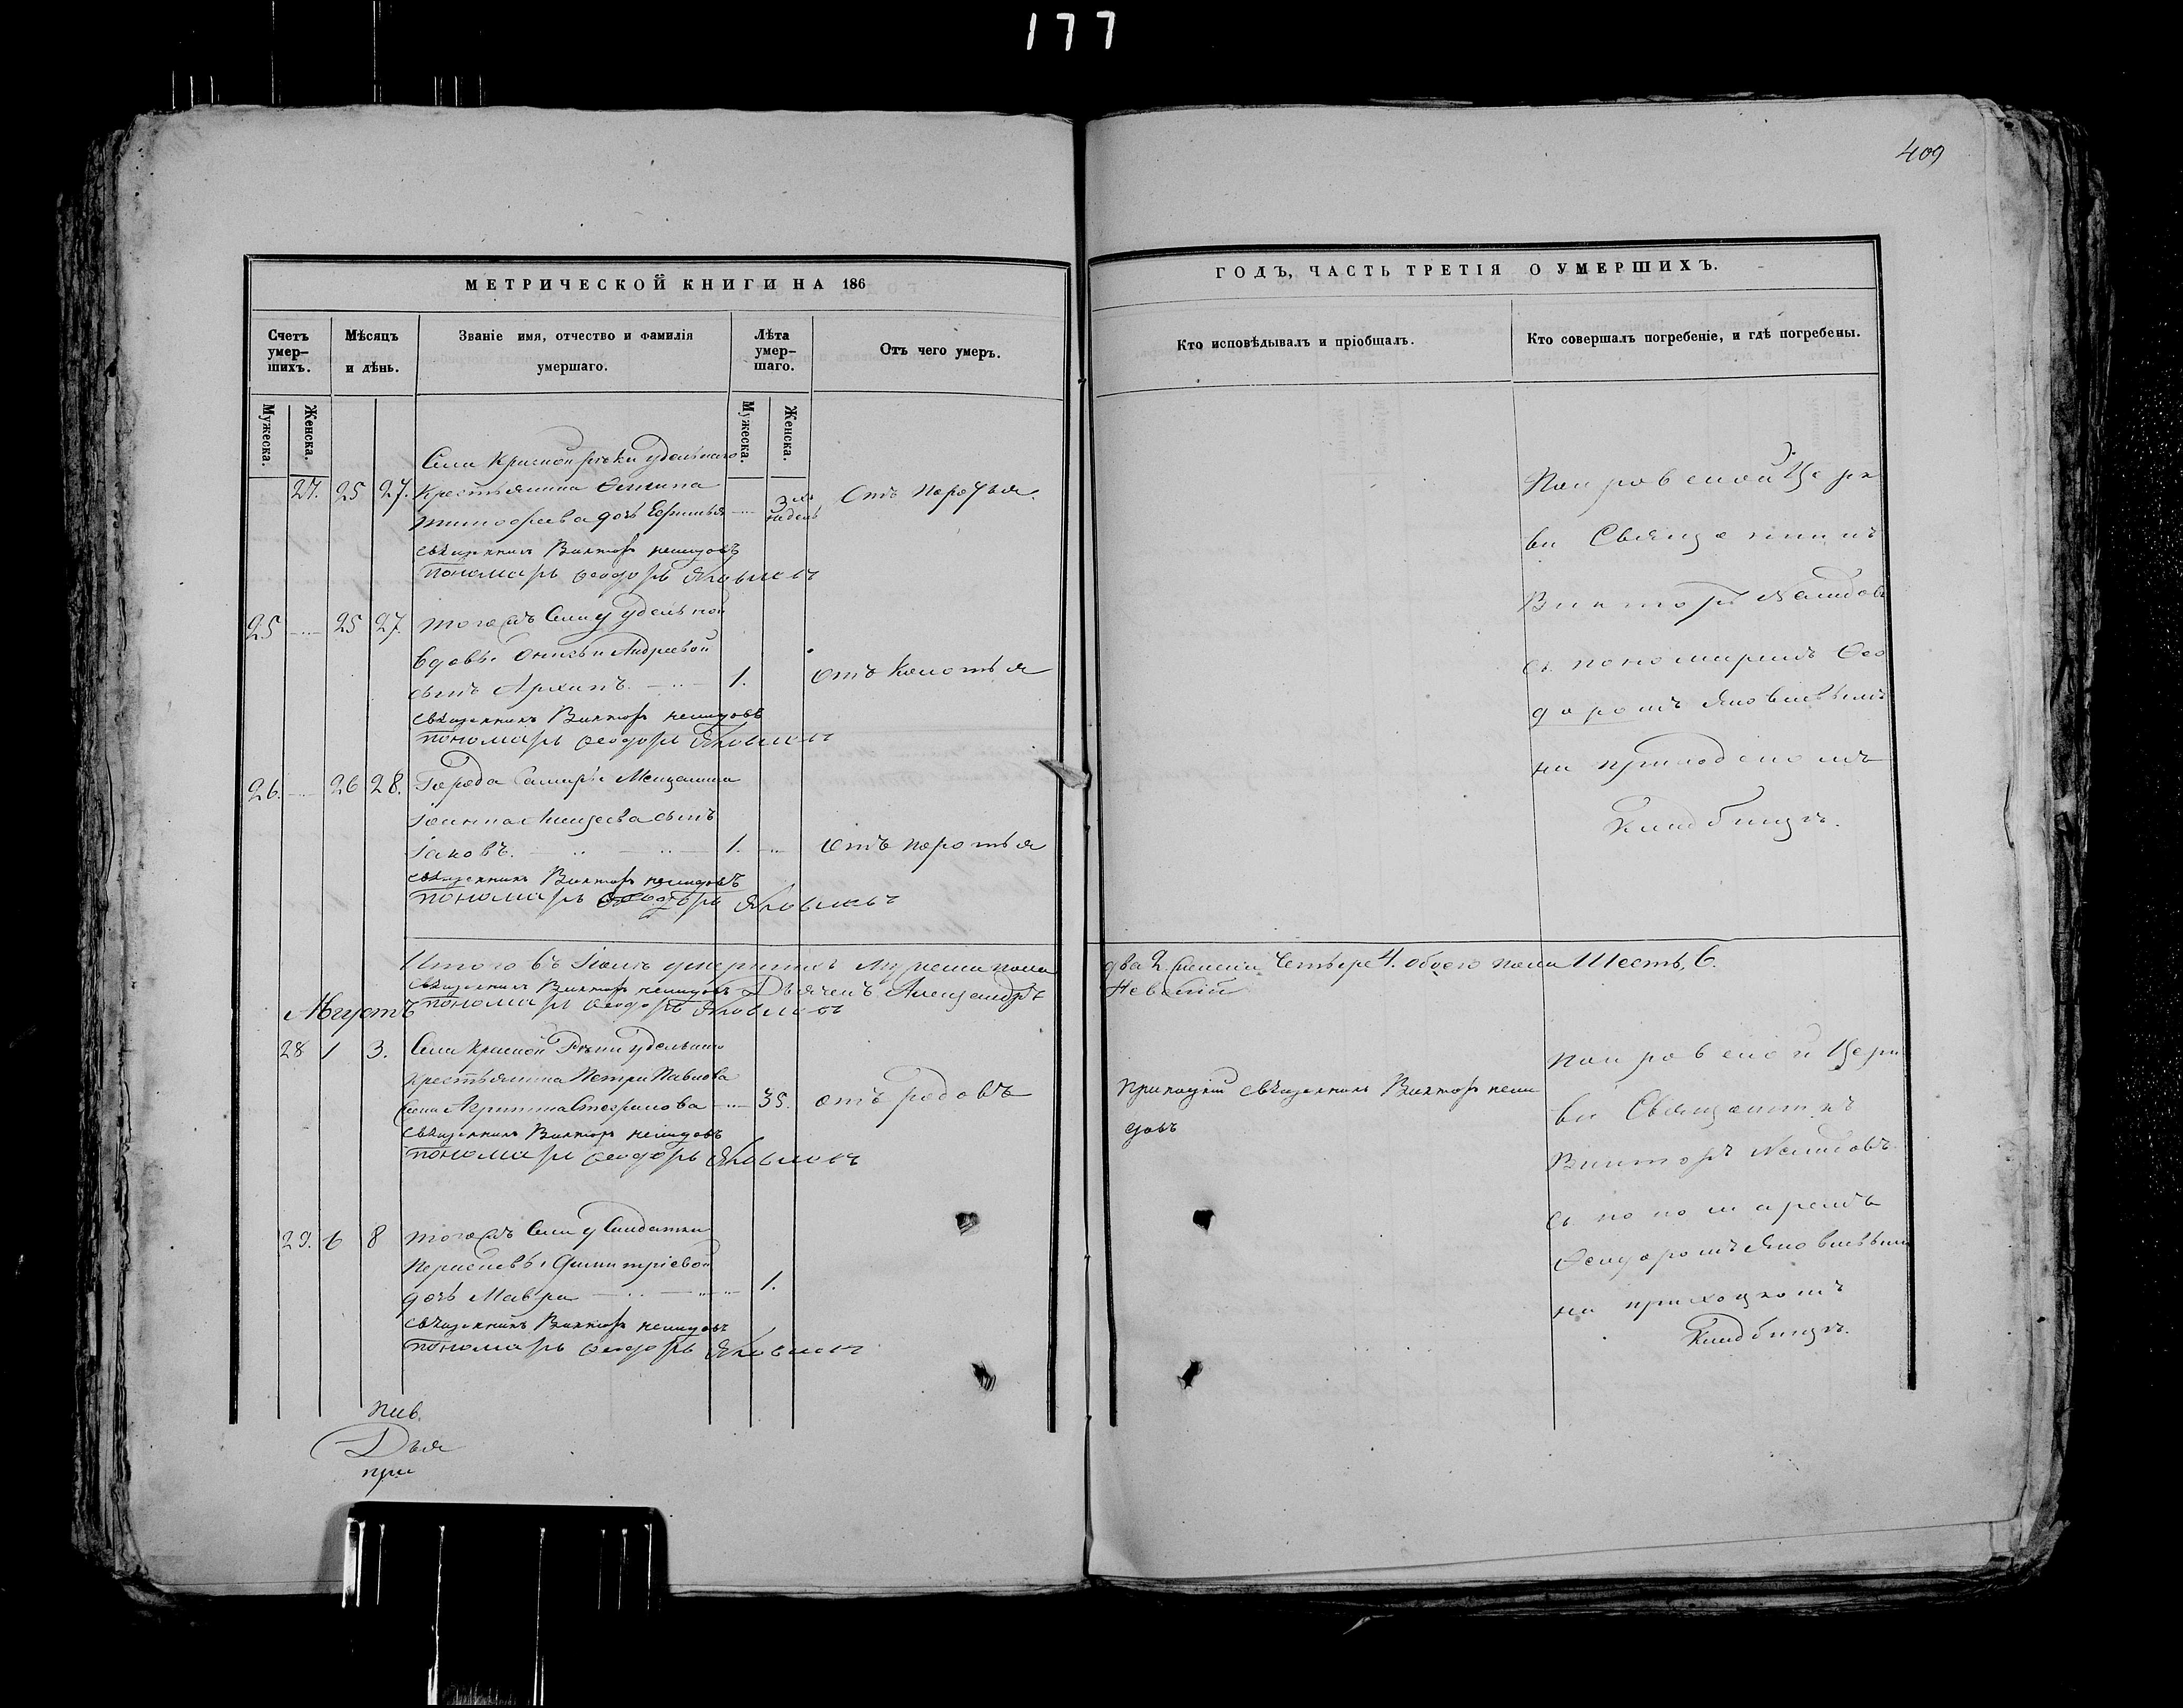 177
409
МЕТРИЧЕСКОЙ КНИГИ НА 186
ГОДЪ, ЧАСТЬ ТРЕТІЯ О УМЕРШИХЪ.
Счетъ умер-шихъ.
Мѣсяцъ и дѣнь.
Званіе имя, отчество и фамилія умершаго.
Лѣта умер-шаго.
Отъ чего умеръ.
Кто исповѣдывалъ и пріобщалъ.
Кто совершалъ погребеніе, и гдѣ погребены.
Мужеска.
Женска.
Мужеска.
Женска.
Села Красной рѣки удельнаго
27. 25 27. Крестьянина Осипа
Тимофеева дочь Ефимья 3 хъ недель Отъ
священникъ Викторъ
пономарь Феодоръ Яковлевъ
25 25 27. того же Села у удельной
вдовы Андреевой
сынъ Архипъ 1. отъ Колотья
священникъ Викторъ
пономарь Феодоръ Яковлевъ
26. 26 28. Города Самары Мещанина
Іоанна сынъ
Іаковъ. 1. отъ
священникъ Викторъ
пономарь Феодоръ Яковлевъ
Покровской Церк
ви Священникъ
Викторъ
съ пономаремъ Фео
доромъ Яковлевымъ
на приходскомъ
Кладбищѣ.
Итого въ Іюлѣ умершихъ Мужеска пола два 2. Женска Четыре 4. обоего пола Шесть, 6.
священникъ Викторъ Дьячекъ Александръ Невскій
пономарь Феодоръ Яковлевъ
Августъ
28 1 3. Села Красной Рѣки удельнаго
Крестьянина Петра Павлова
жена 35. отъ родовъ
священникъ Викторъ
пономарь Феодоръ Яковлевъ
священникъ Викторъ
29. 6 8 того же Села у Солдатки
Димитріевой
дочь Мавра 1.
священникъ Викторъ
пономарь Феодоръ Яковлевъ
Покровской Церк
ви Священникъ
Викторъ
съ пономаремъ
Феодоромъ Яковлевымъ
на приходскомъ
Кладбищѣ.
Дья
при